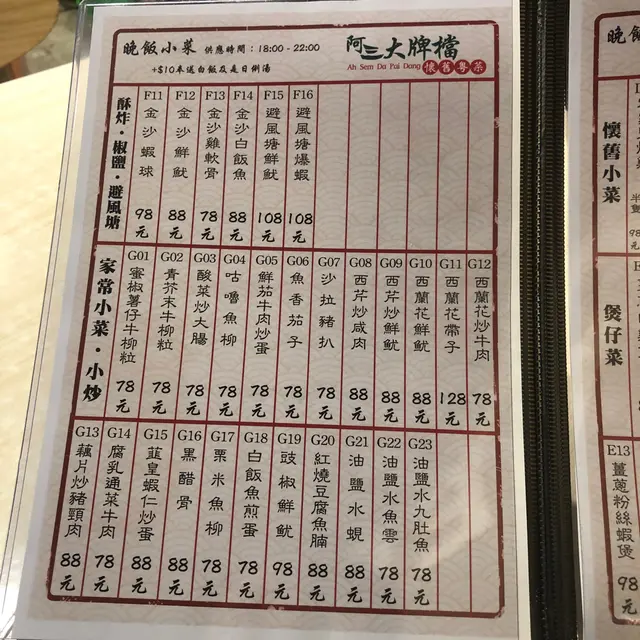 晚飯小菜 供應時間：18:00 - 22:00
+$10奉送白飯及是日例湯
阿三大牌檔
Ah Sem Da Pai Dang 懷舊粵菜
酥炸・椒鹽・避風塘
F11 金沙蝦球 98元
F12 金沙鮮魷 88元
F13 金沙雞軟骨 78元
F14 金沙白飯魚 88元
F15 避風塘鮮魷 108元
F16 避風塘爆蝦 108元
家常小菜・小炒
G01 蜜椒薯仔牛柳粒 78元
G02 青芥末牛柳粒 78元
G03 酸菜炒大腸 78元
G04 咕嚕魚柳 78元
G05 鮮茄牛肉炒蛋 78元
G06 魚香茄子 78元
G07 沙拉豬扒 78元
G08 西芹炒咸肉 88元
G09 西芹炒鮮魷 88元
G10 西蘭花鮮魷 88元
G11 西蘭花帶子 128元
G12 西蘭花炒牛肉 78元
G13 藕片炒豬頸肉 88元
G14 腐乳通菜牛肉 78元
G15 韮皇蝦仁炒蛋 88元
G16 黑醋骨 88元
G17 栗米魚柳 78元
G18 白飯魚煎蛋 78元
G19 豉椒鮮魷 98元
G20 紅燒豆腐魚腩 88元
G21 油鹽水蜆 88元
G22 油鹽水魚雲 78元
G23 油鹽水九肚魚 78元
晚飯
懷舊小菜
煲仔菜
E13 薑蔥粉絲蝦煲 98元